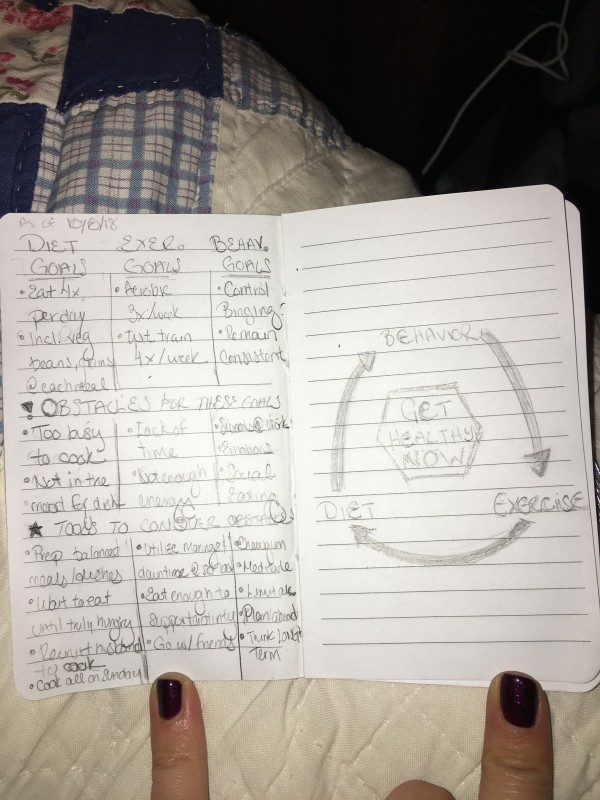 As of 10/8/18
DIET EXER. BEHAV.
GOALS GOALS GOALS
• Eat 4x • Aerobic • Control
per day 3x/week Binging
• Incl. veg • Wt train • Remain
beans, grains 4x/week Consistent
@ each meal
! OBSTACLES FOR THESE GOALS
• Too busy • Lack of
to cook time • Emotions
• Not in the • Not enough • Social
mood for dish energy Eating
★ TOOLS TO CONQUER OBSTACLES
• Prep balanced • Utilize
meals/dishes downtime @ • Meditate
• Wait to eat • Eat enough to • Limit
until truly hungry support activity • Plan ahead
• Recruit husband • Go w/ friends • Think Long
to cook Term
• Cook all on Sunday
BEHAVIOR
GET
HEALTHY
NOW
DIET EXERCISE